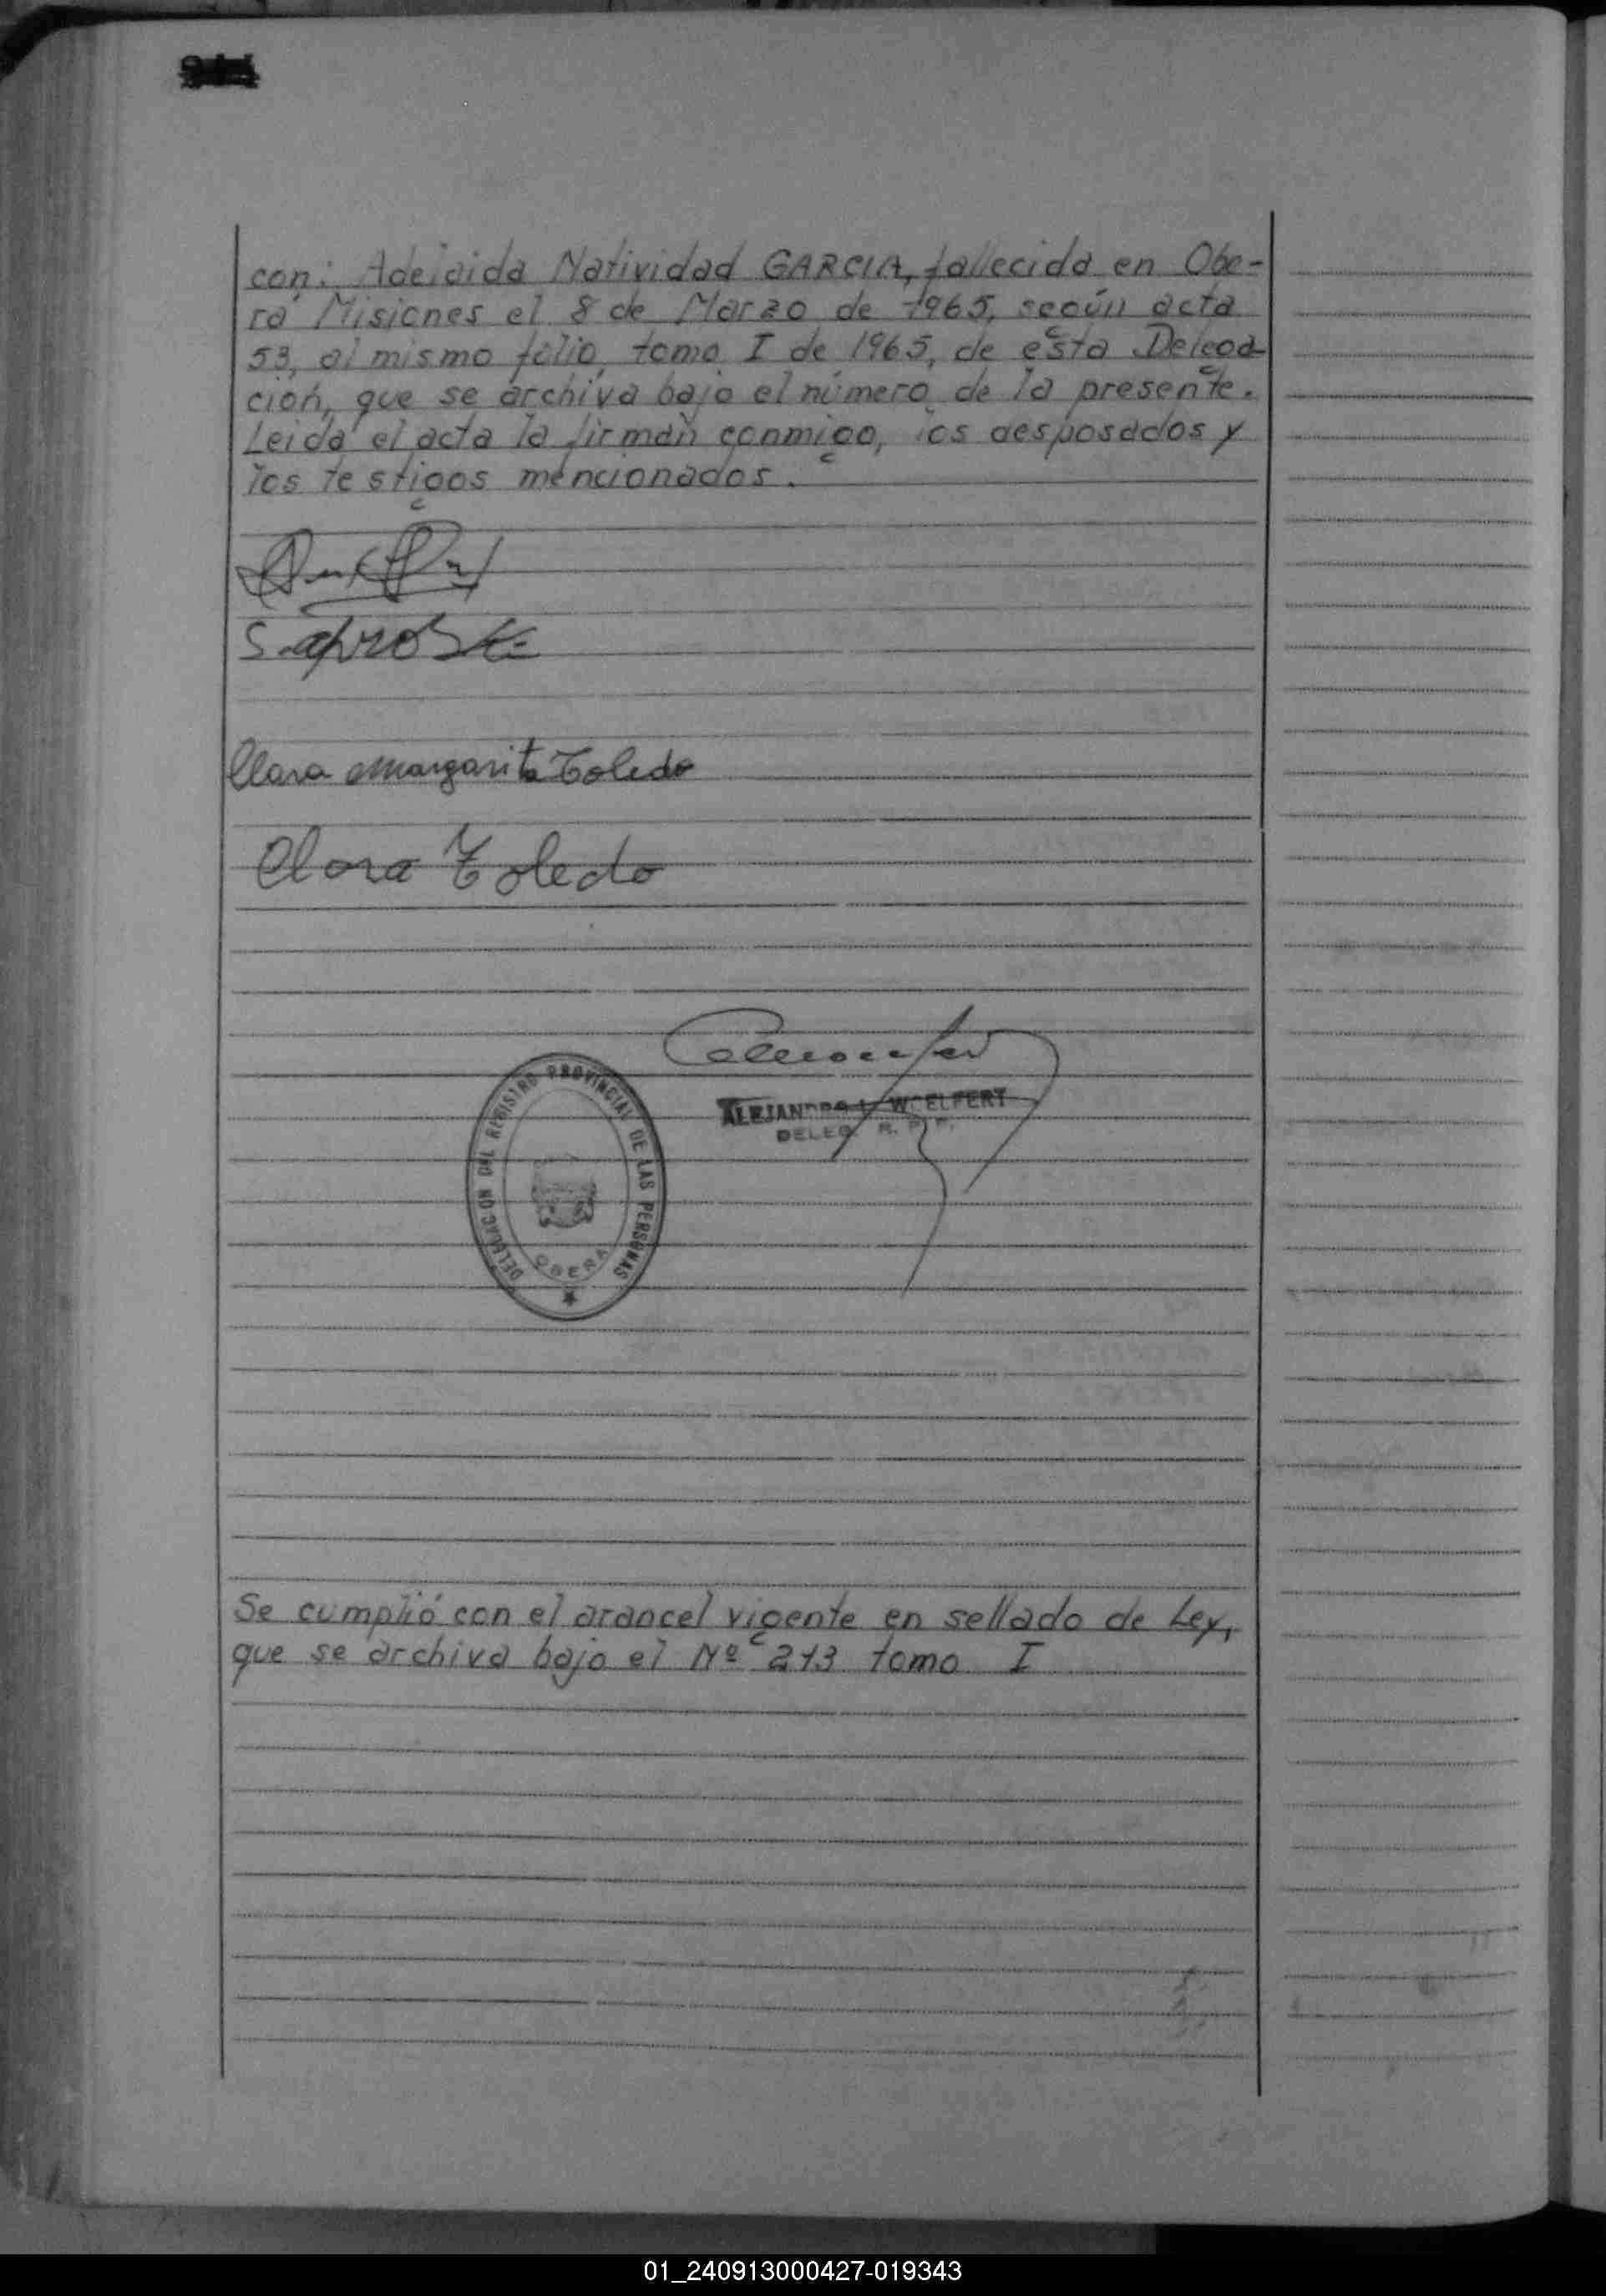 con: Adelaida Natividad GARCIA, fallecida en Obe-
rá Misiones el 8 de Marzo de 1965, según acta
53, al mismo folio, tomo I de 1965, de esta Delega-
ción, que se archiva bajo el número de la presente.
Leida el acta la firman conmigo, los desposados y
los testigos mencionados.
Clara Margarita Toledo
Clara Toledo
ALEJANDRO L. WOELFERT
DELEG. R. P. P.
DELEGACION DEL REGISTRO PROVINCIAL DE LAS PERSONAS
OBERA
Se cumplió con el arancel vigente en sellado de Ley,
que se archiva bajo el Nº 213 tomo I
01_240913000427-019343